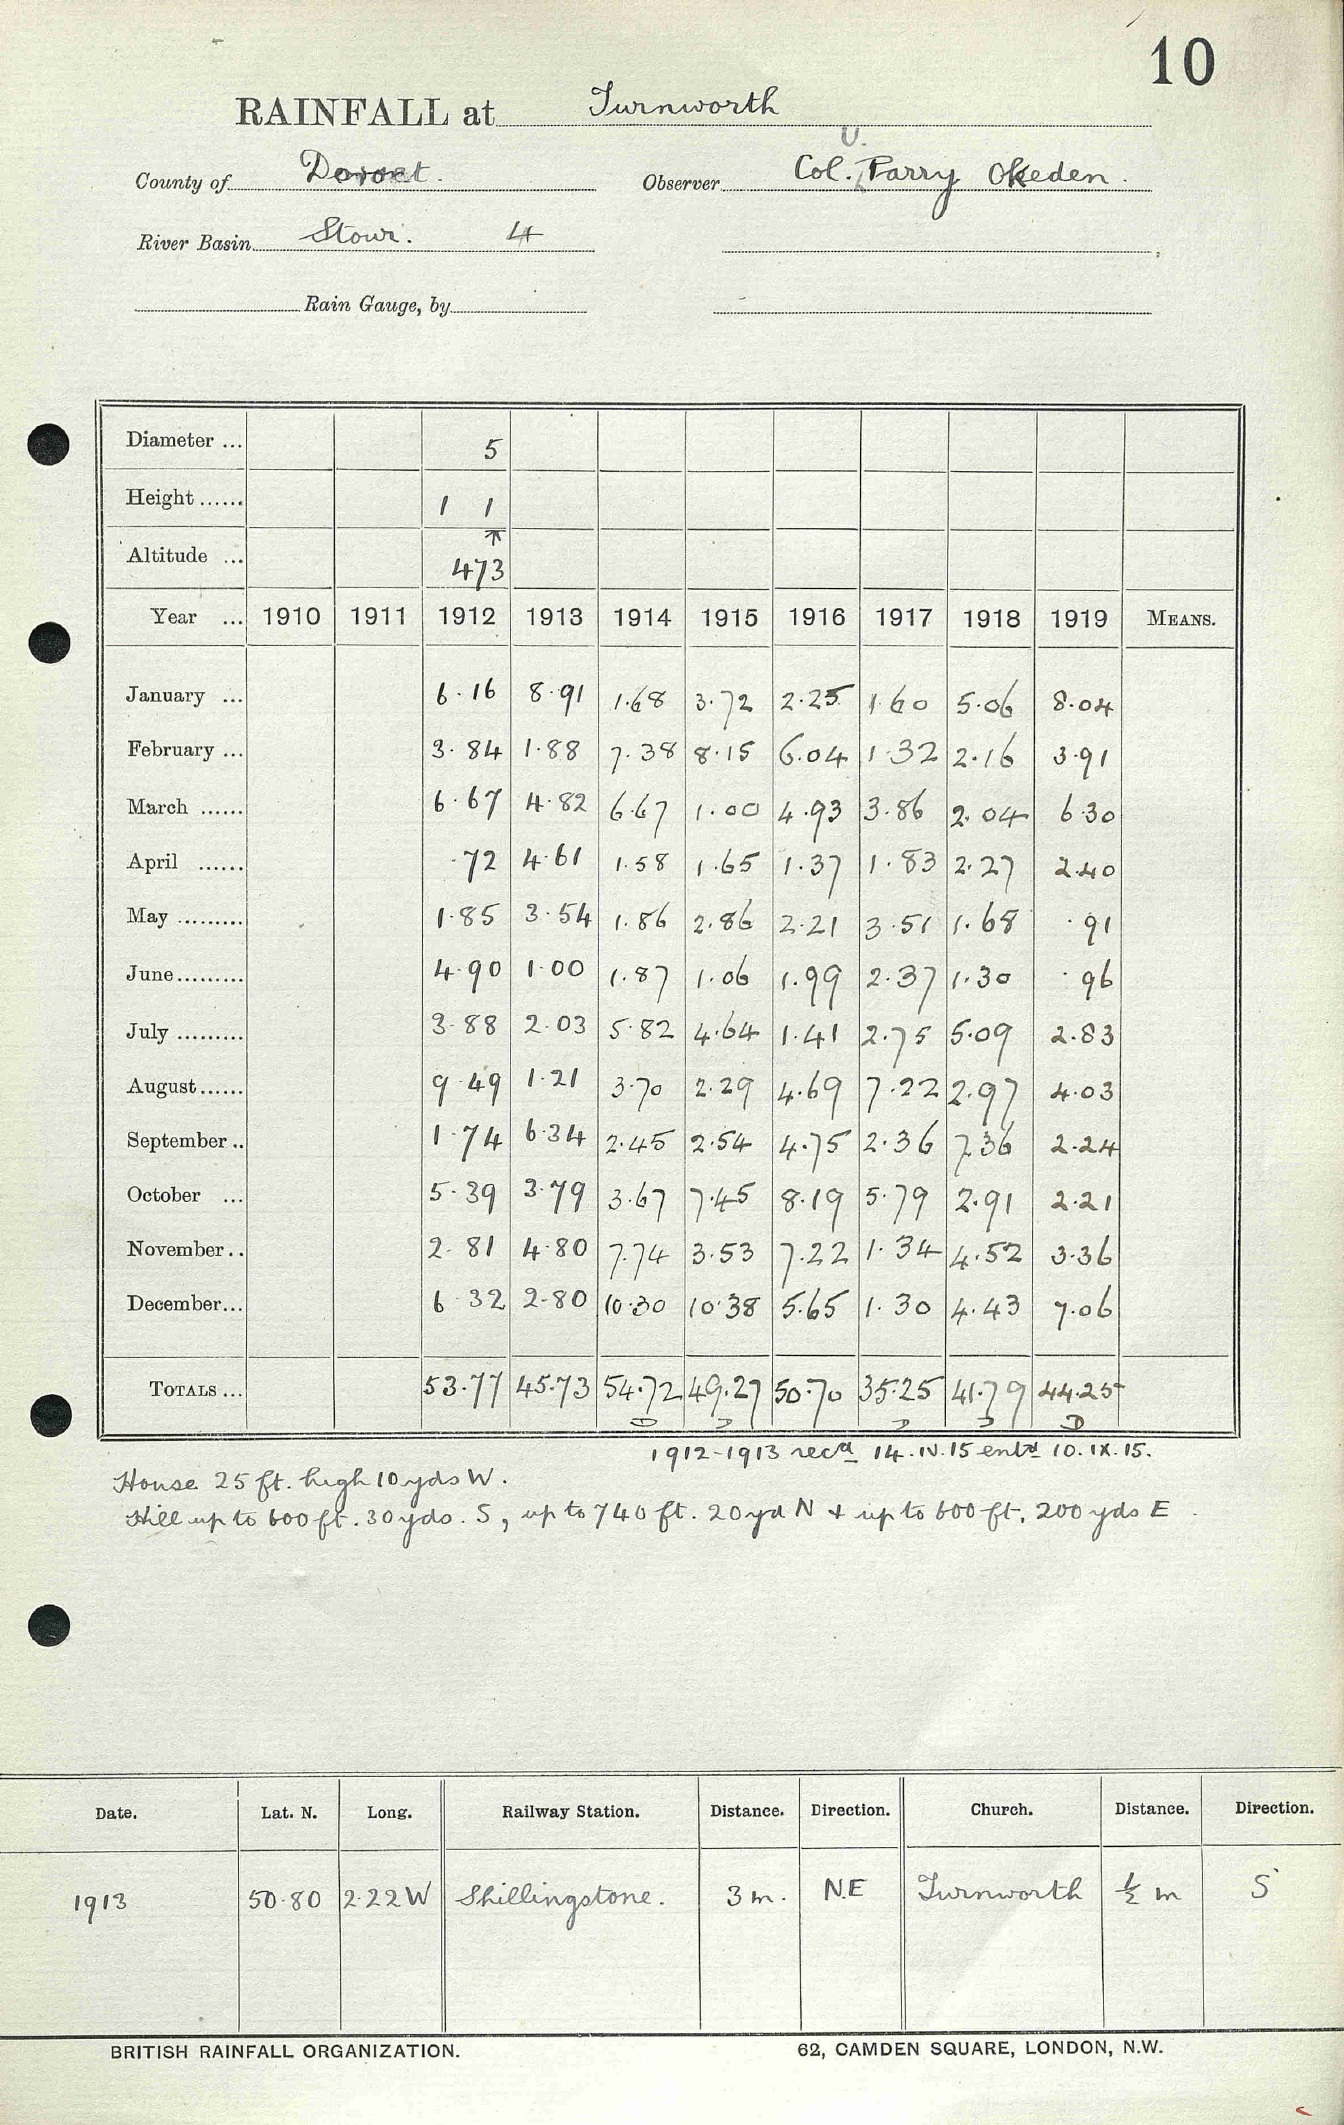 10
RAINFALL at Turnworth
County of Dorset. Observer Col. U. Parry Okeden.
River Basin Stour. 4
Rain Gauge, by
Diameter ... 5
Height ...... 1 1
Altitude ... 473
Year ... 1910 1911 1912 1913 1914 1915 1916 1917 1918 1919 MEANS.
January ... 6.16 8.91 1.68 3.72 2.25 1.60 5.06 8.04
February ... 3.84 1.88 7.38 8.15 6.04 1.32 2.16 3.91
March ...... 6.67 4.82 6.67 1.00 4.93 3.86 2.04 6.30
April ...... .72 4.61 1.58 1.65 1.37 1.83 2.27 2.40
May ......... 1.85 3.54 1.86 2.86 2.21 3.51 1.68 .91
June ......... 4.90 1.00 1.87 1.06 1.99 2.37 1.30 .96
July ......... 3.88 2.03 5.82 4.64 1.41 2.75 5.09 2.83
August ...... 9.49 1.21 3.70 2.29 4.69 7.22 2.97 4.03
September .. 1.74 6.34 2.45 2.54 4.75 2.36 7.36 2.24
October ... 5.39 3.79 3.67 7.45 8.19 5.79 2.91 2.21
November .. 2.81 4.80 7.74 3.53 7.22 1.34 4.52 3.36
December ... 6.32 2.80 10.30 10.38 5.65 1.30 4.43 7.06
TOTALS ... 53.77 45.73 54.72 49.27 50.70 35.25 41.79 44.25
D D D D D
1912-1913 recd 14.IV.15 entd 10.IX.15.
House 25 ft. high 10 yds W.
Hill up to 600 ft. 30 yds. S, up to 740 ft. 20 yd N + up to 600 ft. 200 yds E
Date. Lat. N. Long. Railway Station. Distance. Direction. Church. Distance. Direction.
1913 50.80 2.22W Shillingstone. 3 m. N.E Turnworth ½ m S
BRITISH RAINFALL ORGANIZATION. 62, CAMDEN SQUARE, LONDON, N.W.